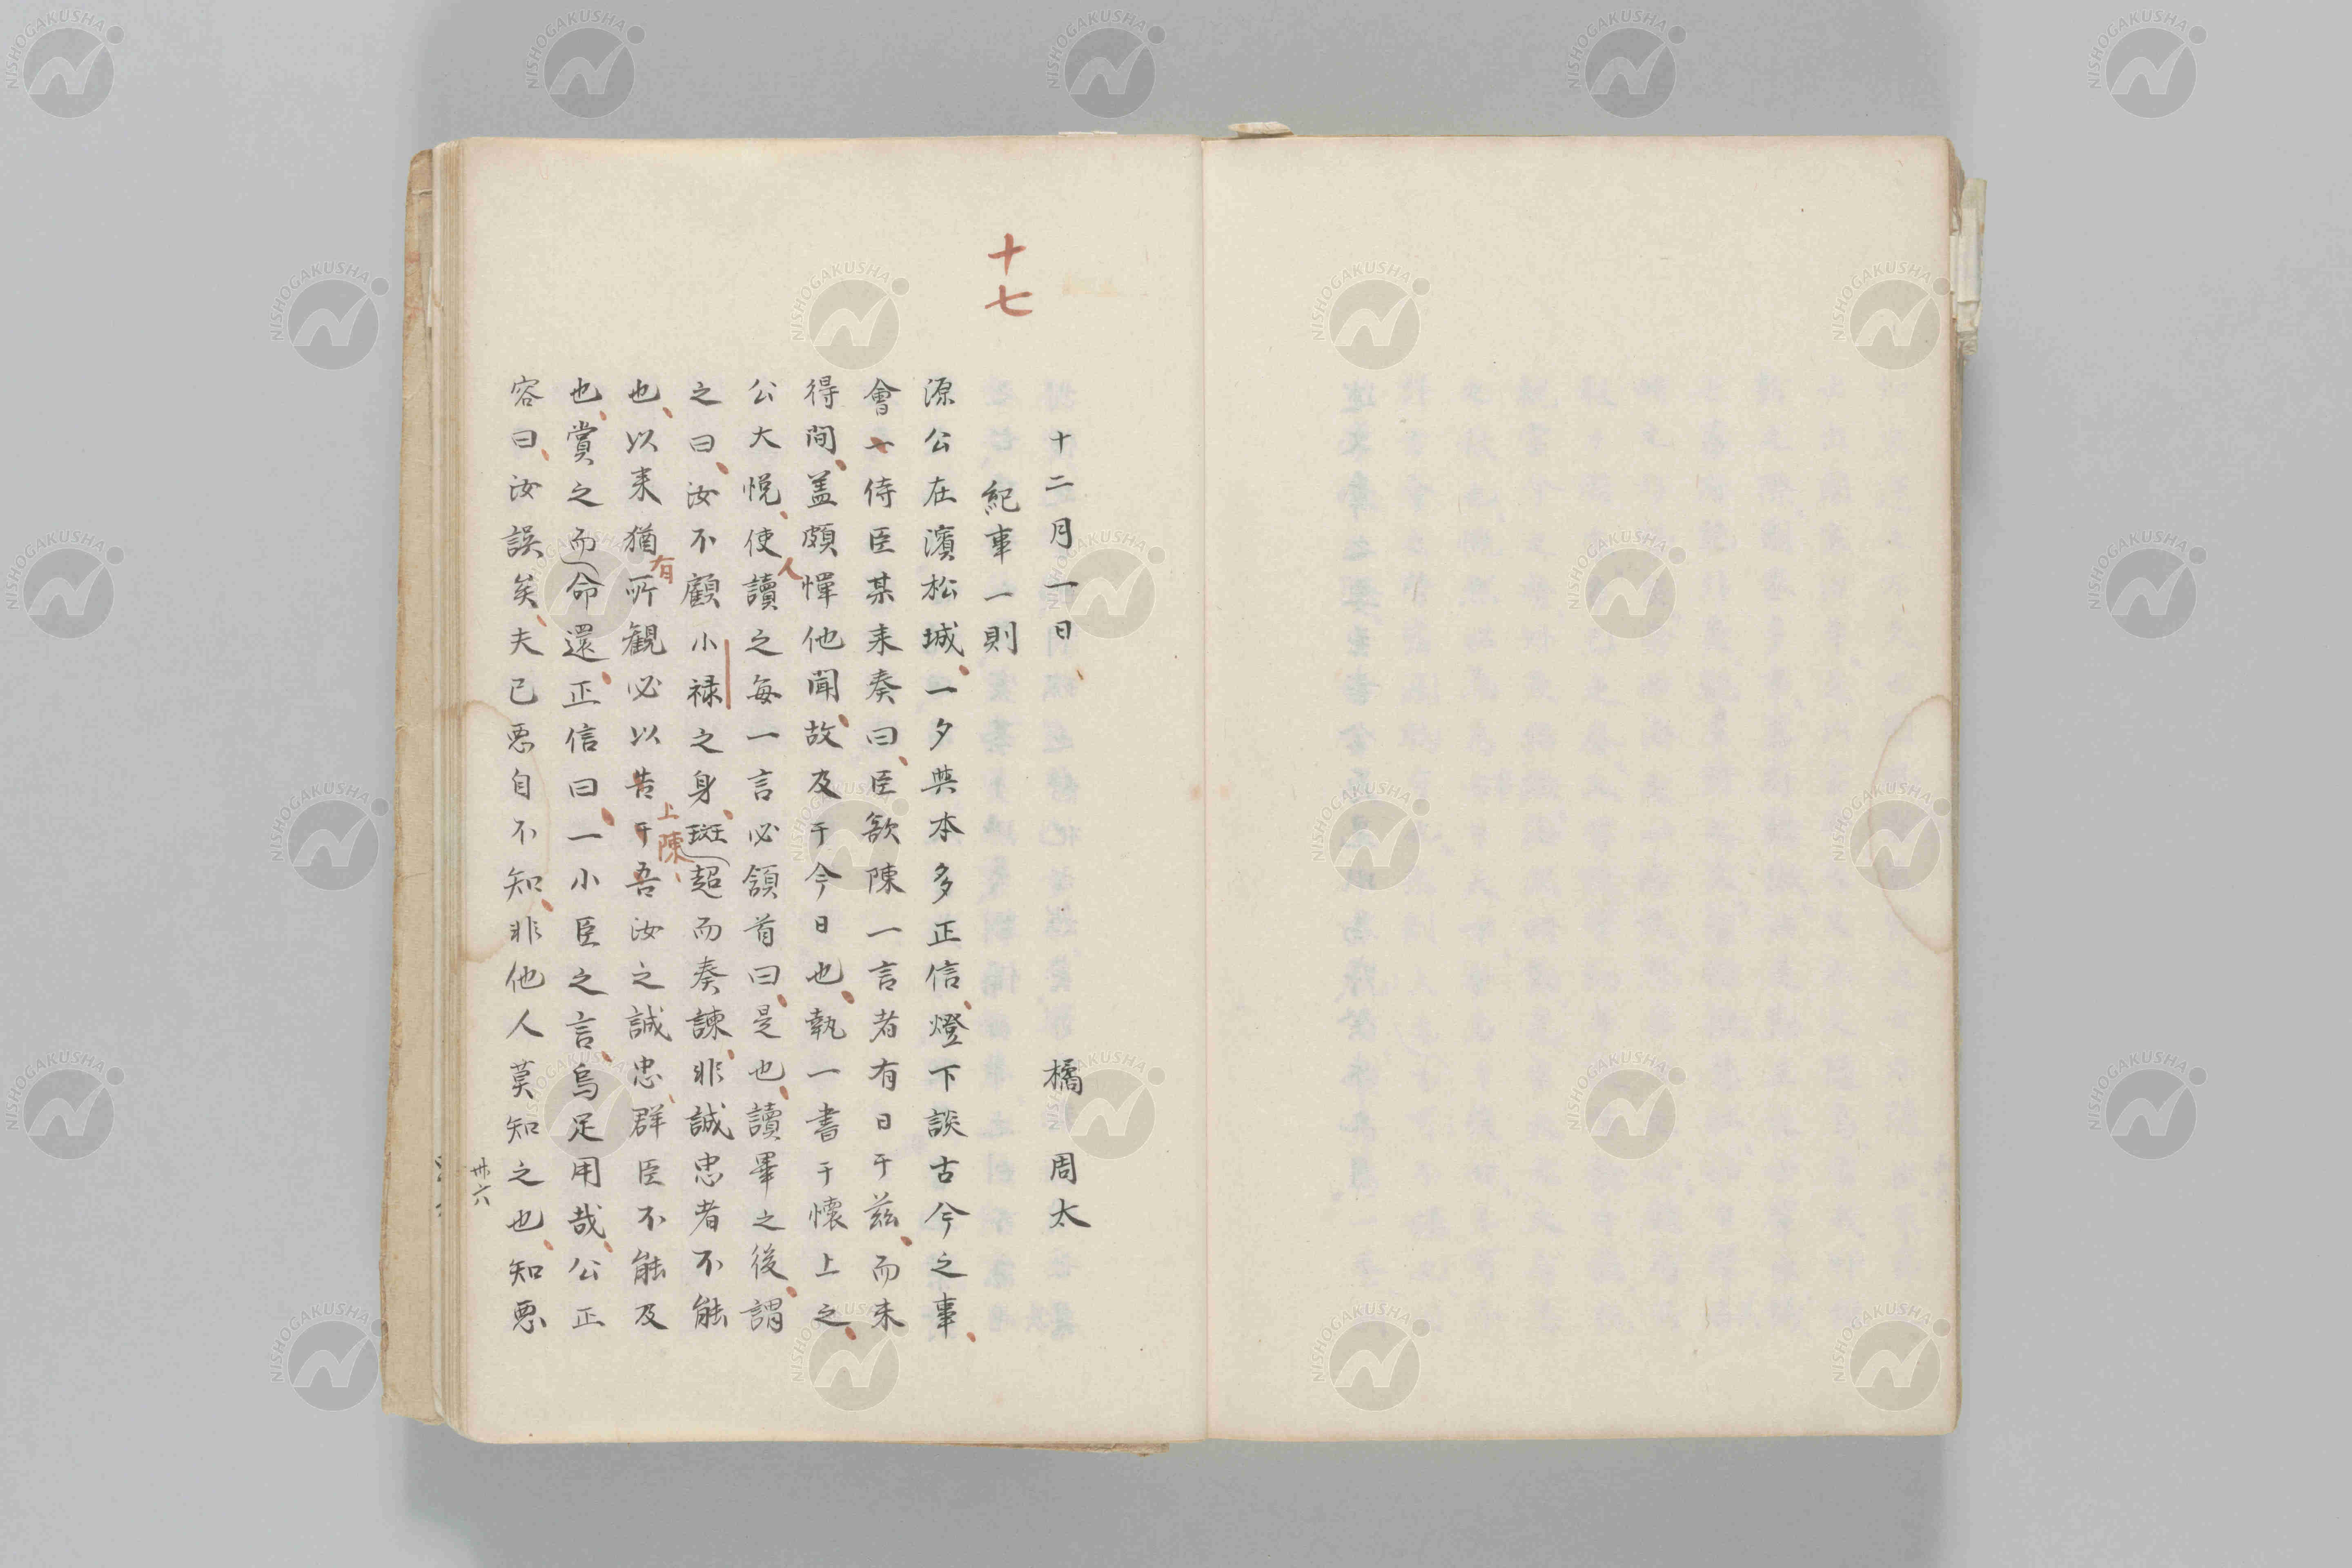 十七
十二月一日　橘　周太
紀事一則
源公在濱松城、一夕與本多正信、燈下談古今之事、
會一侍臣某来奏曰、臣欲陳一言者有日于茲、而未
得間、盖頗憚他聞故、及于今日也、執一書于懷上之、
公大悦、使人讀之每一言必頷首曰、是也、讀畢之後、謂
之曰、汝不顧小禄之身、斑超而奏諫、非誠忠者不能
也、以来猶有所観必以告于吾上陳、汝之誠忠、群臣不能及
也、賞之而命還、正信曰、一小臣之言、烏足用哉、公正
容曰、汝誤矣、夫己悪自不知、非他人莫知之也、知悪
卅六
NISHOGAKUSHA